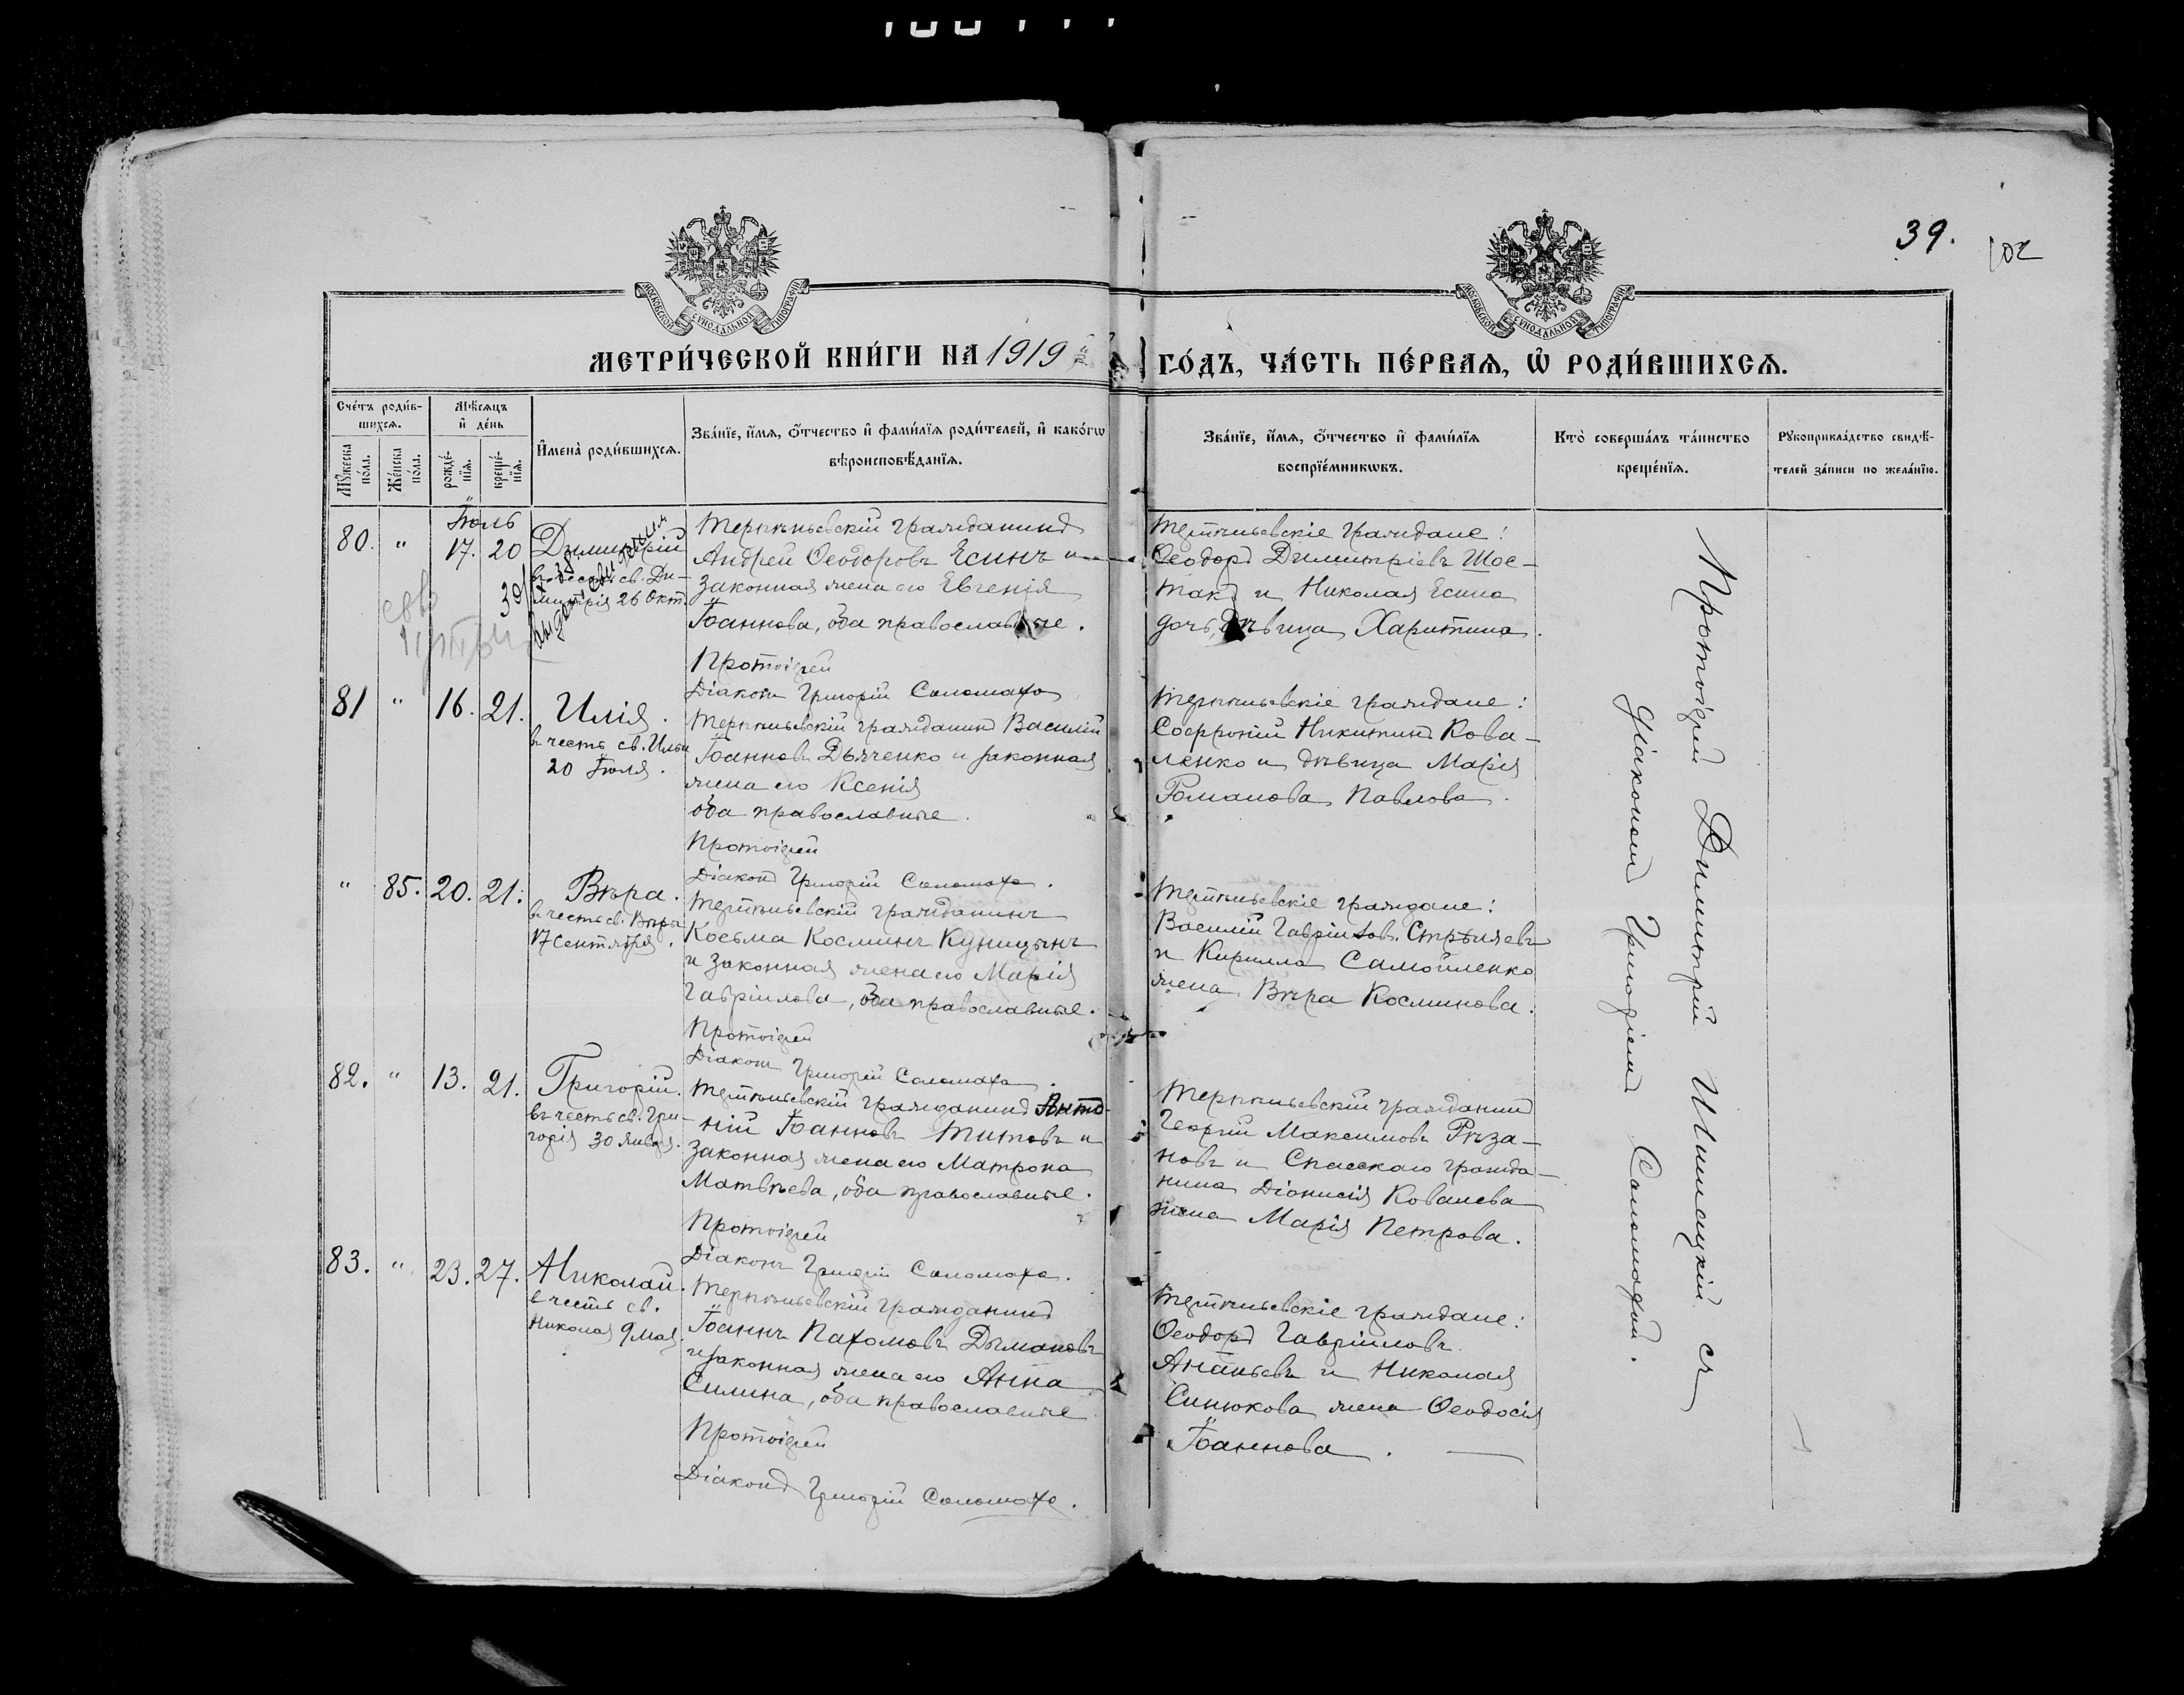 39.
102
МОСКОВСКОЙ СУНОДАЛЬНОЙ ТИПОГРАФІИ
МОСКОВСКОЙ СУНОДАЛЬНОЙ ТИПОГРАФІИ
МЕТРИ́ЧЕСКОЙ КНИ́ГИ НА 1919 й ГО́ДЪ, ЧА́СТЬ ПЕ́РВАѦ, Ѡ҆ РОДИ́ВШИХСѦ.
Сче́тъ роди́в-
шихсѧ.
Мѹ́жеска по́ла.
Же́нска по́ла.
Мѣ́сѧцъ
и҆ де́нь
рожде́-
нїѧ.
креще́-
нїѧ.
И҆мена̀ роди́вшихсѧ.
Зва́нїе, и҆́мѧ, ѻ҆́тчество и҆ фамѝлїѧ роди́телей, и҆ како́гѡ
вѣроисповѣ́данїѧ.
Зва́нїе, и҆́мѧ, ѻ҆́тчество и҆ фамѝлїѧ
воспрїе́мникѡвъ.
Кто̀ соверша́лъ та́инство
креще́нїѧ.
Рѹкоприкла́дство свидѣ́-
телей за́писи по жела́нїю.
Іюль
80. " 17. 20
Димитрій
въ честь св. Ди-
митрія 26 Окт.
Терпѣньевскій гражданинъ
Андрей Ѳеодоровъ Есинъ и
законная жена его Евгенія
Іоаннова, оба православные.
Протоіерей
Діаконъ Григорій Саломаха
Терпѣньевскіе граждане:
Ѳеодоръ Димитріевъ Шос-
такъ и Николая Есина
дочь, дѣвица Харитина.
81 " 16. 21.
Илія.
въ честь св. Ильи
20 Іюля.
Терпѣньевскій гражданинъ Василій
Іоанновъ Дьяченко и законная
жена его Ксенія
оба православные.
Протоіерей
Діаконъ Григорій Саломаха.
Терпѣньевскіе граждане:
Софроній Никитинъ Кова-
ленко и дѣвица Марія
Романова Павлова.
" 85. 20. 21.
Вѣра.
въ честь св. Вѣры
17 Сентября.
Терпѣньевскій гражданинъ
Косьма Косминъ Куницынъ
и законная жена его Марія
Гавріилова, оба православные.
Протоіерей
Діаконъ Григорій Саломаха.
Терпѣньевскіе граждане:
Василій Гавріиловъ Стрѣляевъ
и Кирилла Самойленко
жена Вѣра Косминова.
82. " 13. 21.
Григорій.
въ честь св. Гри-
горія 30 Января.
Терпѣньевскій гражданинъ Анто-
ній Іоанновъ Титовъ и
законная жена его Матрона
Матвѣева, оба православные.
Протоіерей
Діаконъ Григорій Саломаха.
Терпѣньевскій гражданинъ
Георгій Максимовъ Рѣза-
новъ и Спасскаго гражда-
нина Діонисія Ковалева
жена Марія Петрова.
83. " 23. 27.
Николай.
въ честь св.
Николая 9 Мая.
Терпѣньевскій гражданинъ
Іоаннъ Пахомовъ Дымановъ
и законная жена его Анна
Силина, оба православные
Протоіерей
Діаконъ Григорій Саломаха.
Терпѣньевскіе граждане:
Ѳеодоръ Гавріиловъ
Ананьевъ и Николая
Синюкова жена Ѳеодосія
Іоаннова.
Протоіерей Димитрій Шишацкій съ
діакономъ Григоріемъ Саломахой.